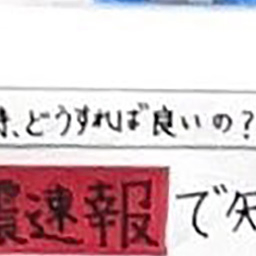 、どうすれば良いの？
震速報で